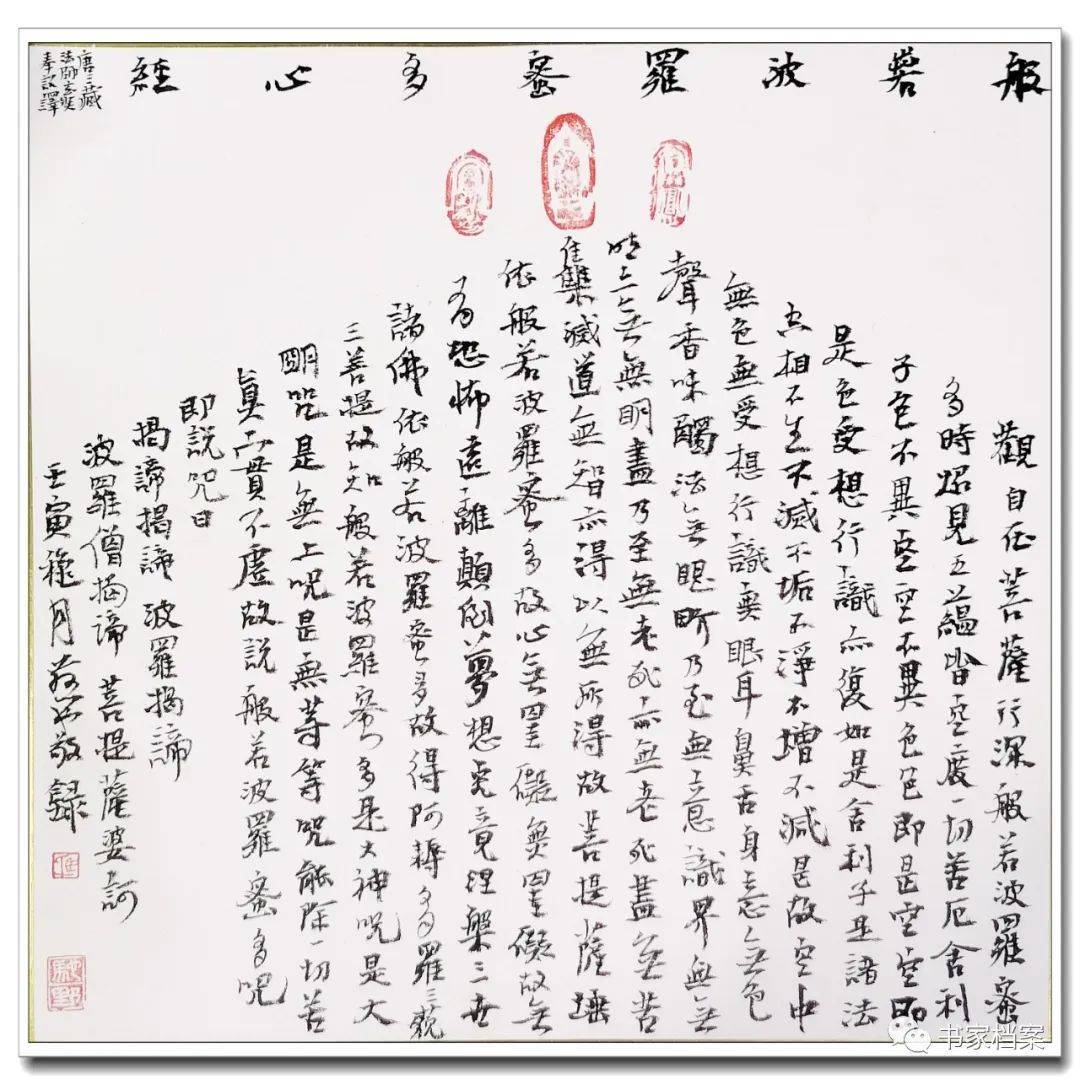 般若波羅蜜多心經
唐三藏
法師玄奘
奉詔譯
觀自在菩薩行深般若波羅蜜
多時照見五蘊皆空度一切苦厄舍利
子色不異空空不異色色即是空空即
是色受想行識亦復如是舍利子是諸法
空相不生不滅不垢不淨不增不減是故空中
無色無受想行識無眼耳鼻舌身意無色
聲香味觸法無眼界乃至無意識界無無
明亦無無明盡乃至無老死亦無老死盡無苦
集滅道無智亦得以無所得故菩提薩埵
依般若波羅蜜多故心無罣礙無罣礙故無
有恐怖遠離顛倒夢想究竟涅槃三世
諸佛依般若波羅蜜多故得阿耨多羅三藐
三菩提故知般若波羅蜜多是大神咒是大
明咒是無上咒是無等等咒能除一切苦
真實不虛故說般若波羅蜜多咒
即說咒曰
揭諦揭諦 波羅揭諦
波羅僧揭諦 菩提薩婆訶
壬寅穐月敬錄
书家档案